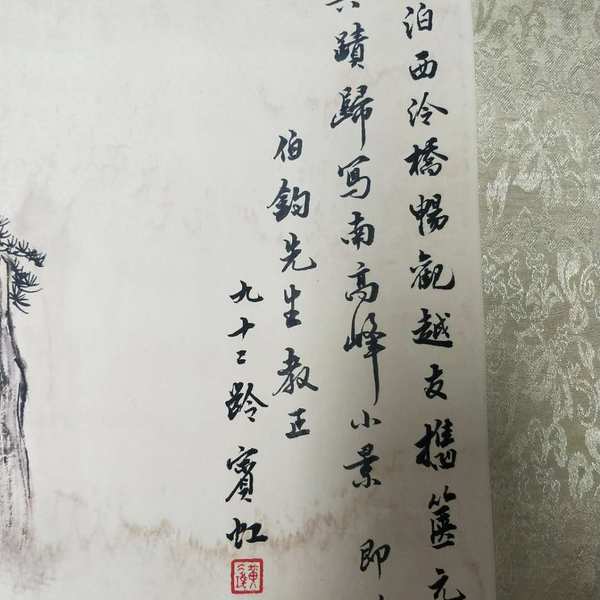 泊西泠橋暢觀越友攜篋元
蹟歸写南高峰小景 即
伯鈞先生教正
九十二齡賓虹